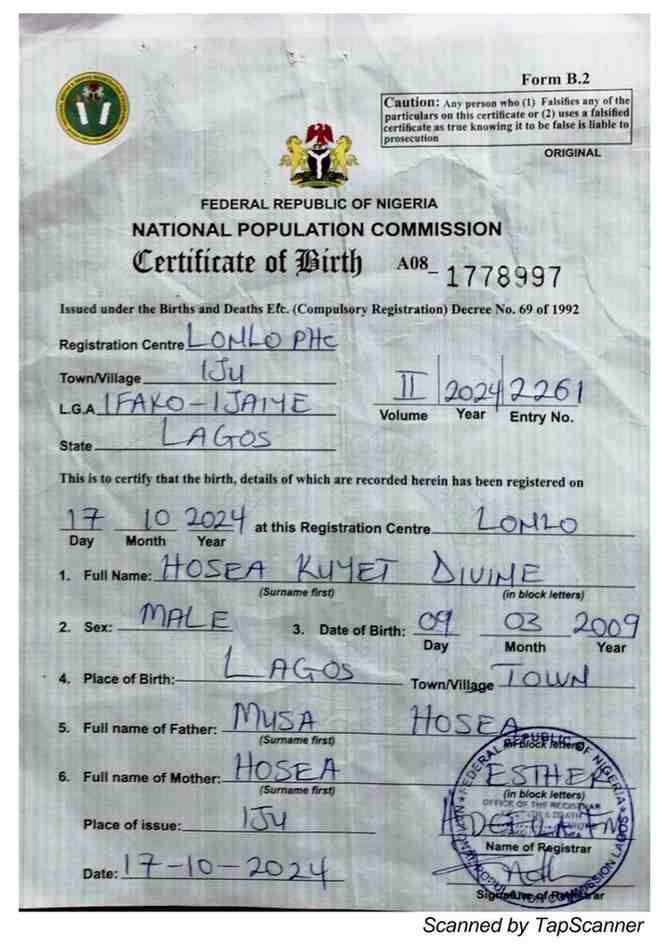 Form B.2
Caution: Any person who (1) Falsifies any of the
particulars on this certificate or (2) uses a falsified
certificate as true knowing it to be false is liable to
prosecution
ORIGINAL
FEDERAL REPUBLIC OF NIGERIA
NATIONAL POPULATION COMMISSION
Certificate of Birth A08_ 1778997
Issued under the Births and Deaths Etc. (Compulsory Registration) Decree No. 69 of 1992
Registration Centre LONLO PHC
Town/Village IJU
L.G.A IFAKO-IJAIYE
II 2024 2261
Volume Year Entry No.
State LAGOS
This is to certify that the birth, details of which are recorded herein has been registered on
17 10 2024 at this Registration Centre LONLO
Day Month Year
1. Full Name: HOSEA KUYET DIVINE
(Surname first) (in block letters)
2. Sex: MALE 3. Date of Birth: 09 03 2009
Day Month Year
4. Place of Birth: LAGOS Town/Village TOWN
5. Full name of Father: MUSA HOSEA
(Surname first) (in block letters)
6. Full name of Mother: HOSEA ESTHER
(Surname first) (in block letters)
OFFICE OF THE REGISTRAR
Place of issue: IJU
Name of Registrar
Date: 17-10-2024
Signature of Registrar
FEDERAL REPUBLIC OF NIGERIA
NATIONAL POPULATION COMMISSION LAGOS
Scanned by TapScanner